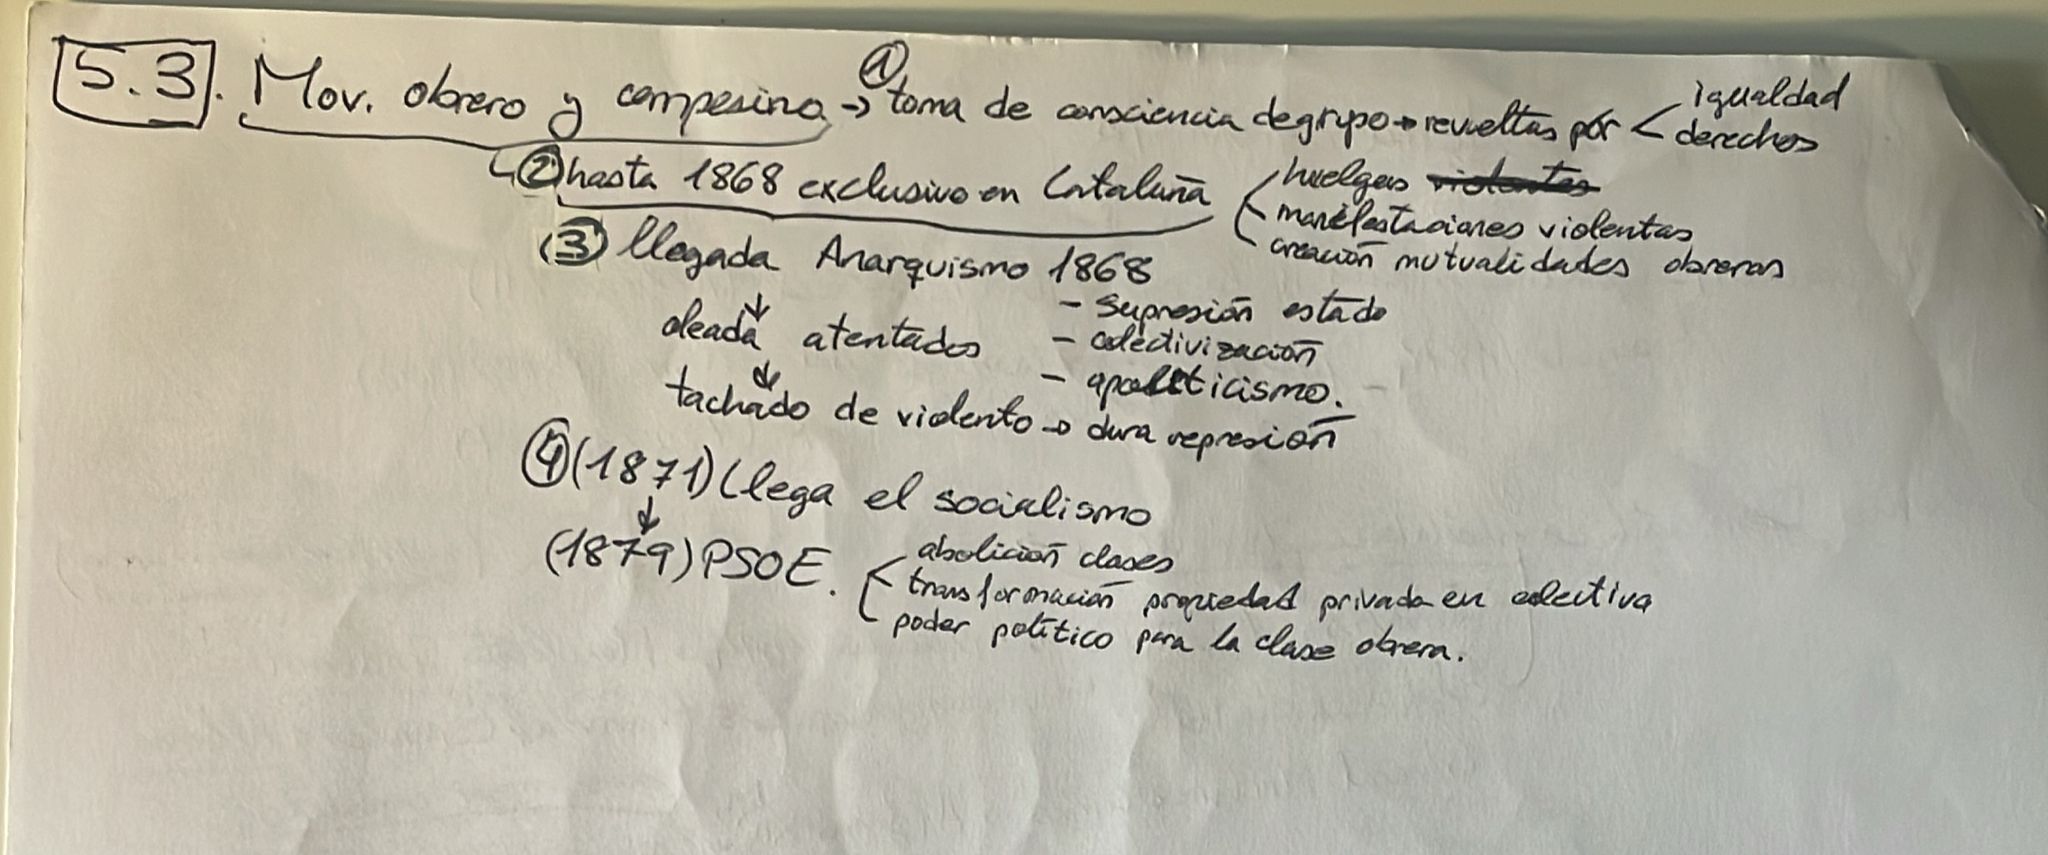 5.3. Mov. obrero y campesino → ① toma de consciencia de grupo → revueltas por < igualdad
derechos
② hasta 1868 exclusivo en Cataluña < huelgas
manifestaciones violentas
creación mutualidades obreras
③ llegada Anarquismo 1868
- supresión estado
- colectivización
- apoliticismo.
↓
oleada atentados
↓
tachado de violento → dura represión
④ (1871) Llega el socialismo
↓
(1879) PSOE. < abolición clases
transformación propiedad privada en colectiva
poder político para la clase obrera.